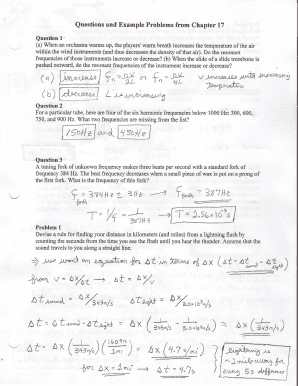 Questions and Example Problems from Chapter 17
Question 1
(a) When an orchestra warms up, the players' warm breath increases the temperature of the air
within the wind instruments (and thus decreases the density of that air). Do the resonant
frequencies of those instruments increase or decrease? (b) When the slide of a slide trombone is
pushed outward, do the resonant frequencies of the instrument increase or decrease?
(a) increase fn = nv/2L or fn = nv/4L v increases with increasing
temperature
(b) decrease L is increasing
Question 2
For a particular tube, here are four of the six harmonic frequencies below 1000 Hz: 300, 600,
750, and 900 Hz. What two frequencies are missing from the list?
150Hz and 450Hz
Question 3
A tuning fork of unknown frequency makes three beats per second with a standard fork of
frequency 384 Hz. The beat frequency decreases when a small piece of wax is put on a prong of
the first fork. What is the frequency of this fork?
f = 384Hz ± 3Hz → f = 387Hz
T = 1/f = 1/387Hz → T = 2.56×10⁻³s
Problem 1
Devise a rule for finding your distance in kilometers (and miles) from a lightning flash by
counting the seconds from the time you see the flash until you hear the thunder. Assume that the
sound travels to you along a straight line.
⇒ we want an equation for Δt in terms of Δx (Δt = Δt sound - Δt light)
from v = Δx/Δt → Δt = Δx/v
Δt sound = Δx/343m/s Δt light = Δx/3.0×10⁸m/s
Δt = Δt sound - Δt light = Δx (1/343m/s - 1/3.0×10⁸m/s) ≈ Δx (1/343m/s)
Δt = Δx (1/343m/s)(1609m/1mi) = Δx (4.7 s/mi)
for Δx = 1mi → Δt = 4.7s
lightning is
~ 1mile away for
every 5s difference